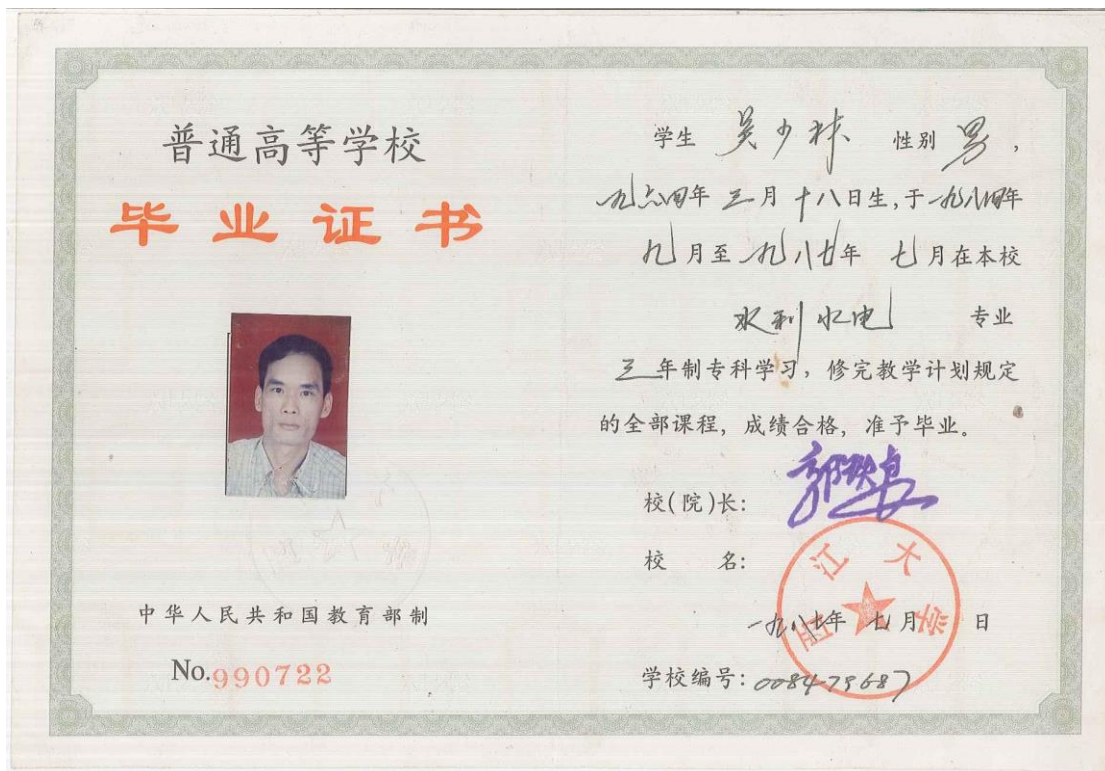 普通高等学校
毕业证书
中华人民共和国教育部制
No.990722
学生 吴少林 性别 男,
一九六四年 三月 十八日生,于一九八四年
九月至一九八七年 七月在本校
水利水电 专业
三年制专科学习,修完教学计划规定
的全部课程,成绩合格,准予毕业。
校(院)长:
校 名:
江大学
一九八七年 七月 日
学校编号:008479687